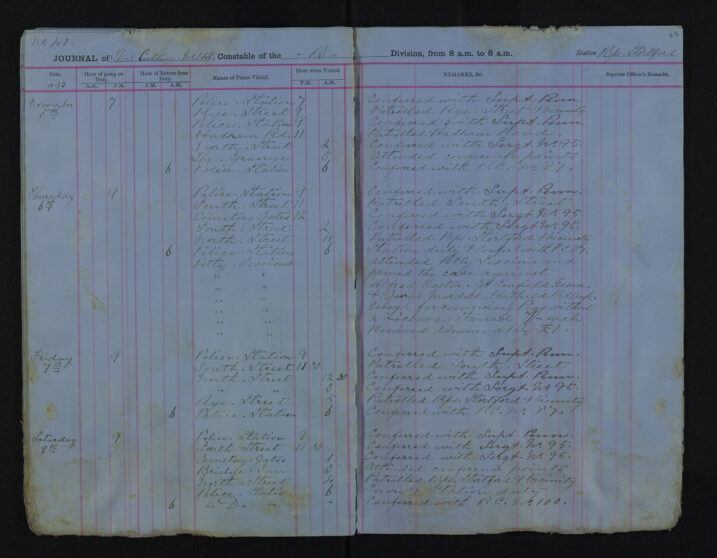 No 41.
43
JOURNAL of Constable of the "B" Division, from 8 a.m. to 8 a.m. Station Bps. Stortford
Date. Hour of going on Duty. Hour of Return from Duty. Names of Places Visited. Hour when Visited. REMARKS, &c. Superior Officer's Remarks.
A.M. P.M. A.M. P.M. P.M. A.M.
November 7 Police Station 7 Conferred with Supt. Penn.
5th Street 9 Patrolled Bps. Stortford Vicinity
Police Station Conferred with Supt. Penn.
Hadham Rd. 11 Patrolled Hadham Road.
North Street 2 Conferred with Sergt No 95
Grange 5 Attended conference points
6 Police Station 6 Conferred with P.C. No 87.
Thursday 9 Police Station 9 Conferred with Supt. Penn.
6th South Street 11 Patrolled South Street
Cemetery Gates 12 Conferred with Sergt No 95
South Street 2 Conferred with Sergt No 95.
North Street 4 Patrolled Bps. Stortford Vicinity
6 Police Station 6 Station duty & conf. with P.C. 87.
Petty Sessions Attended Petty Sessions and
" " proved the case against
" " Alfred Easter
" " & George
" " for without
" " a Licence. Fined each
" " Received allowance
Friday 9 Police Station 9 Conferred with Supt. Penn.
7th South Street 11 30 Patrolled South Street
North Street 12 30 Conferred with Supt. Penn.
" " 3 Conferred with Sergt No 95.
Street 5 Patrolled Bps. Stortford Vicinity
6 Police Station 6 Conferred with P.C. No 87.
Saturday 9 Police Station 9 Conferred with Supt. Penn.
8th Street 11 30 Conferred with Sergt No 95.
Cemetery Gates 1 Conferred with Sergt No 95.
3 Attended conference points
North Street 4 Patrolled Bps. Stortford & Vicinity
Police Station 6 Town & Station duty
6 " Do " " Conferred with P.C. No 100.